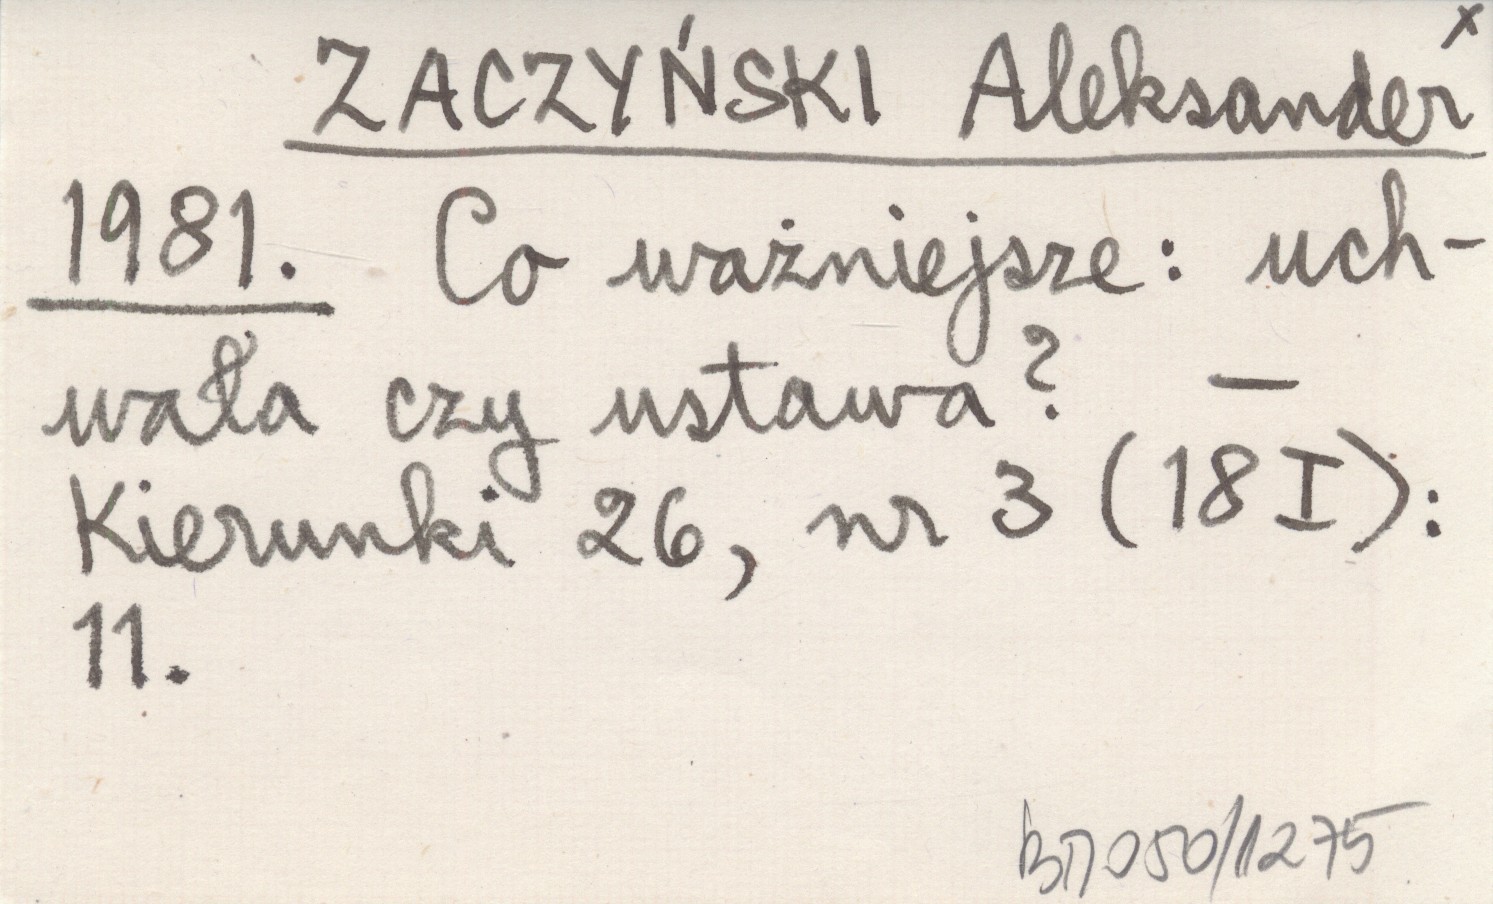 ZACZYŃSKI Aleksander x
1981. Co ważniejsze: uch-
wała czy ustawa? —
Kierunki 26, nr 3 (18 I):
11.
050/1275